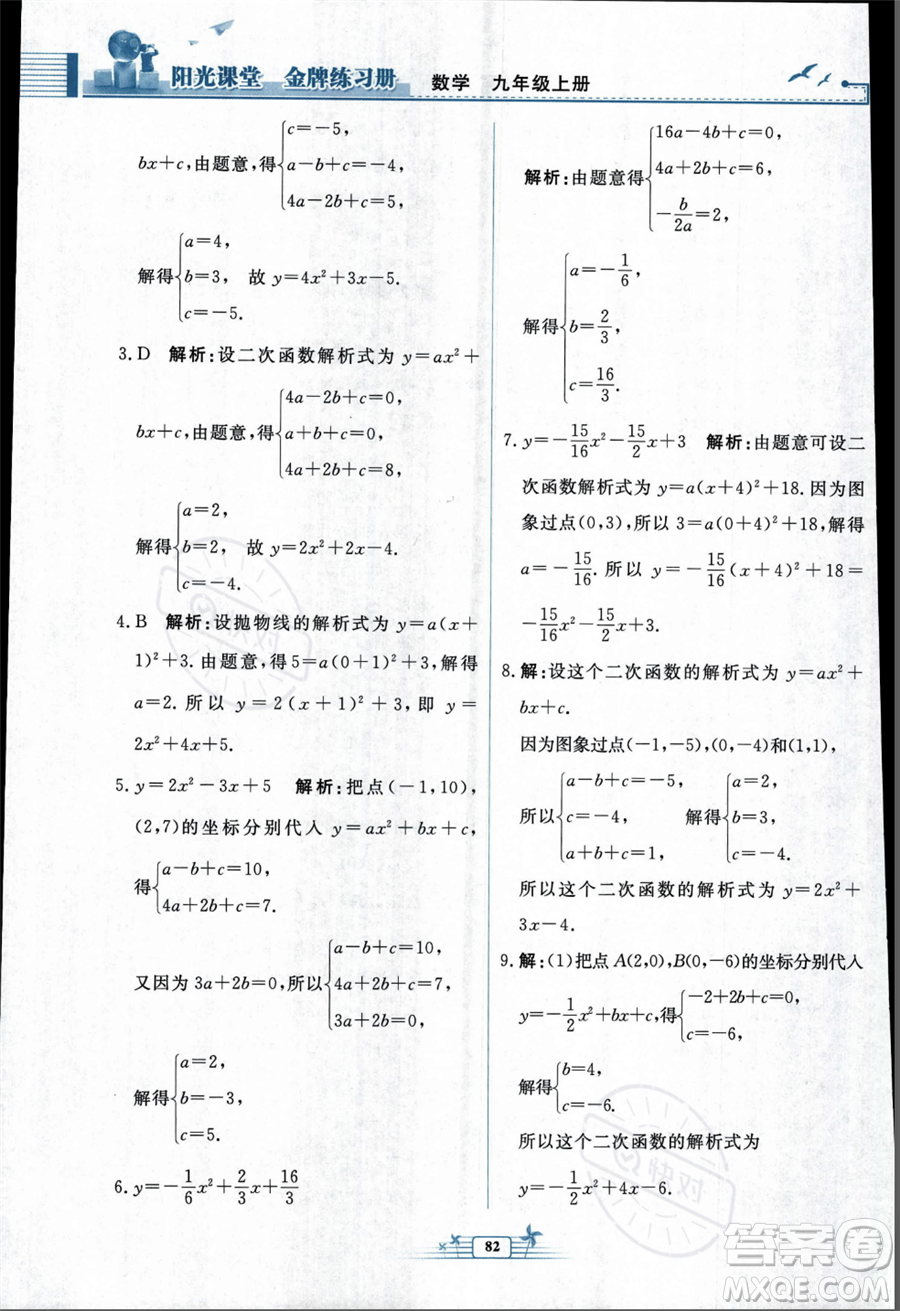 阳光课堂 金牌练习册 数学 九年级上册
bx+c,由题意,得{c=-5,
a-b+c=-4,
4a-2b+c=5,
解得{a=4,
b=3, 故 y=4x²+3x-5.
c=-5.
3. D 解析:设二次函数解析式为 y=ax²+
bx+c,由题意,得{4a-2b+c=0,
a+b+c=0,
4a+2b+c=8,
解得{a=2,
b=2, 故 y=2x²+2x-4.
c=-4.
4. B 解析:设抛物线的解析式为 y=a(x+
1)²+3.由题意,得5=a(0+1)²+3,解得
a=2.所以 y=2(x+1)²+3,即 y=
2x²+4x+5.
5. y=2x²-3x+5 解析:把点(-1,10),
(2,7)的坐标分别代入 y=ax²+bx+c,
得{a-b+c=10,
4a+2b+c=7.
又因为 3a+2b=0,所以{a-b+c=10,
4a+2b+c=7,
3a+2b=0,
解得{a=2,
b=-3,
c=5.
6. y=-1/6x²+2/3x+16/3
解析:由题意得{16a-4b+c=0,
4a+2b+c=6,
-b/2a=2,
解得{a=-1/6,
b=2/3,
c=16/3.
7. y=-15/16x²-15/2x+3 解析:由题意可设二
次函数解析式为 y=a(x+4)²+18.因为图
象过点(0,3),所以 3=a(0+4)²+18,解得
a=-15/16.所以 y=-15/16(x+4)²+18=
-15/16x²-15/2x+3.
8. 解:设这个二次函数的解析式为 y=ax²+
bx+c.
因为图象过点(-1,-5),(0,-4)和(1,1),
所以{a-b+c=-5,
c=-4,
a+b+c=1,
解得{a=2,
b=3,
c=-4.
所以这个二次函数的解析式为 y=2x²+
3x-4.
9. 解:(1)把点 A(2,0),B(0,-6)的坐标分别代入
y=-1/2x²+bx+c,得{-2+2b+c=0,
c=-6,
解得{b=4,
c=-6.
所以这个二次函数的解析式为
y=-1/2x²+4x-6.
82
快对
快对
答案卷
MXQE.COM